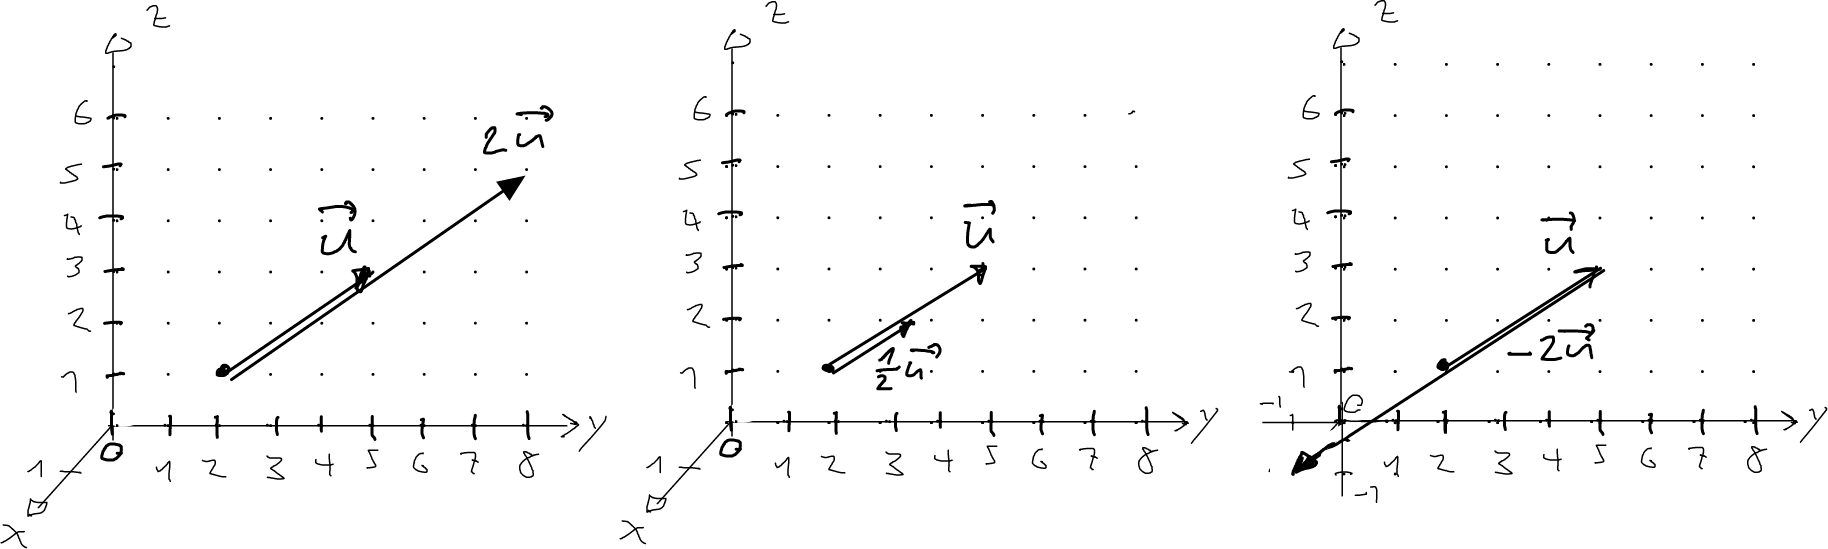 z
6
5
4
3
2
1
0
1 2 3 4 5 6 7 8 y
1
x
2u⃗
u⃗
z
6
5
4
3
2
1
0
1 2 3 4 5 6 7 8 y
1
x
u⃗
1/2 u⃗
z
6
5
4
3
2
1
-1 0
1 2 3 4 5 6 7 8 y
-1
u⃗
-2u⃗